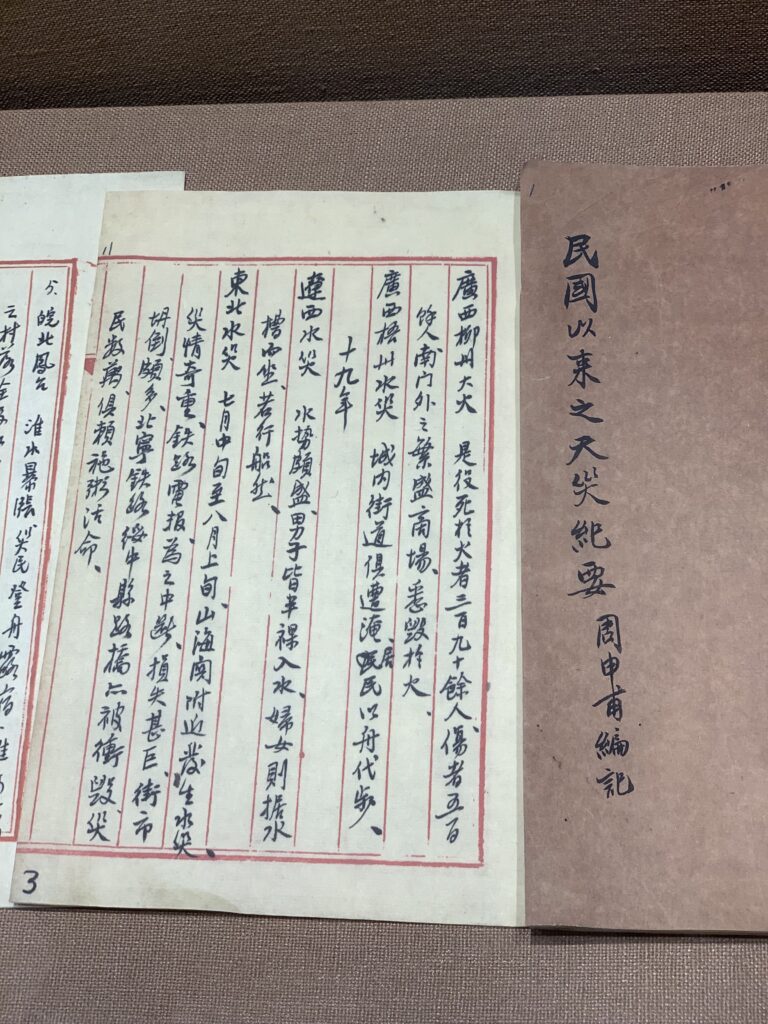 民國以来之天災紀要 周申甫編記
廣西柳州大火 是役死於火者三百九十餘人、傷者五百
餘人南门外之繁盛商場、悉毀於火、
廣西梧州水災 城内街道俱遭淹、居民以舟代步、
十九年
遼西水災 水势頗盛、男子皆半裸入水、婦女則据水
槽而坐、若行船然、
東北水災 七月中旬至八月上旬、山海関附近發生水災、
災情奇重、鉄路電报、為之中断、損失甚巨、街市
坍倒頗多、北寧鉄路綏中縣路橋亦被衝毀、災
民数萬、俱賴施粥活命、
3
5、皖北風台 淮水暴漲 災民登舟露宿、
之村落全